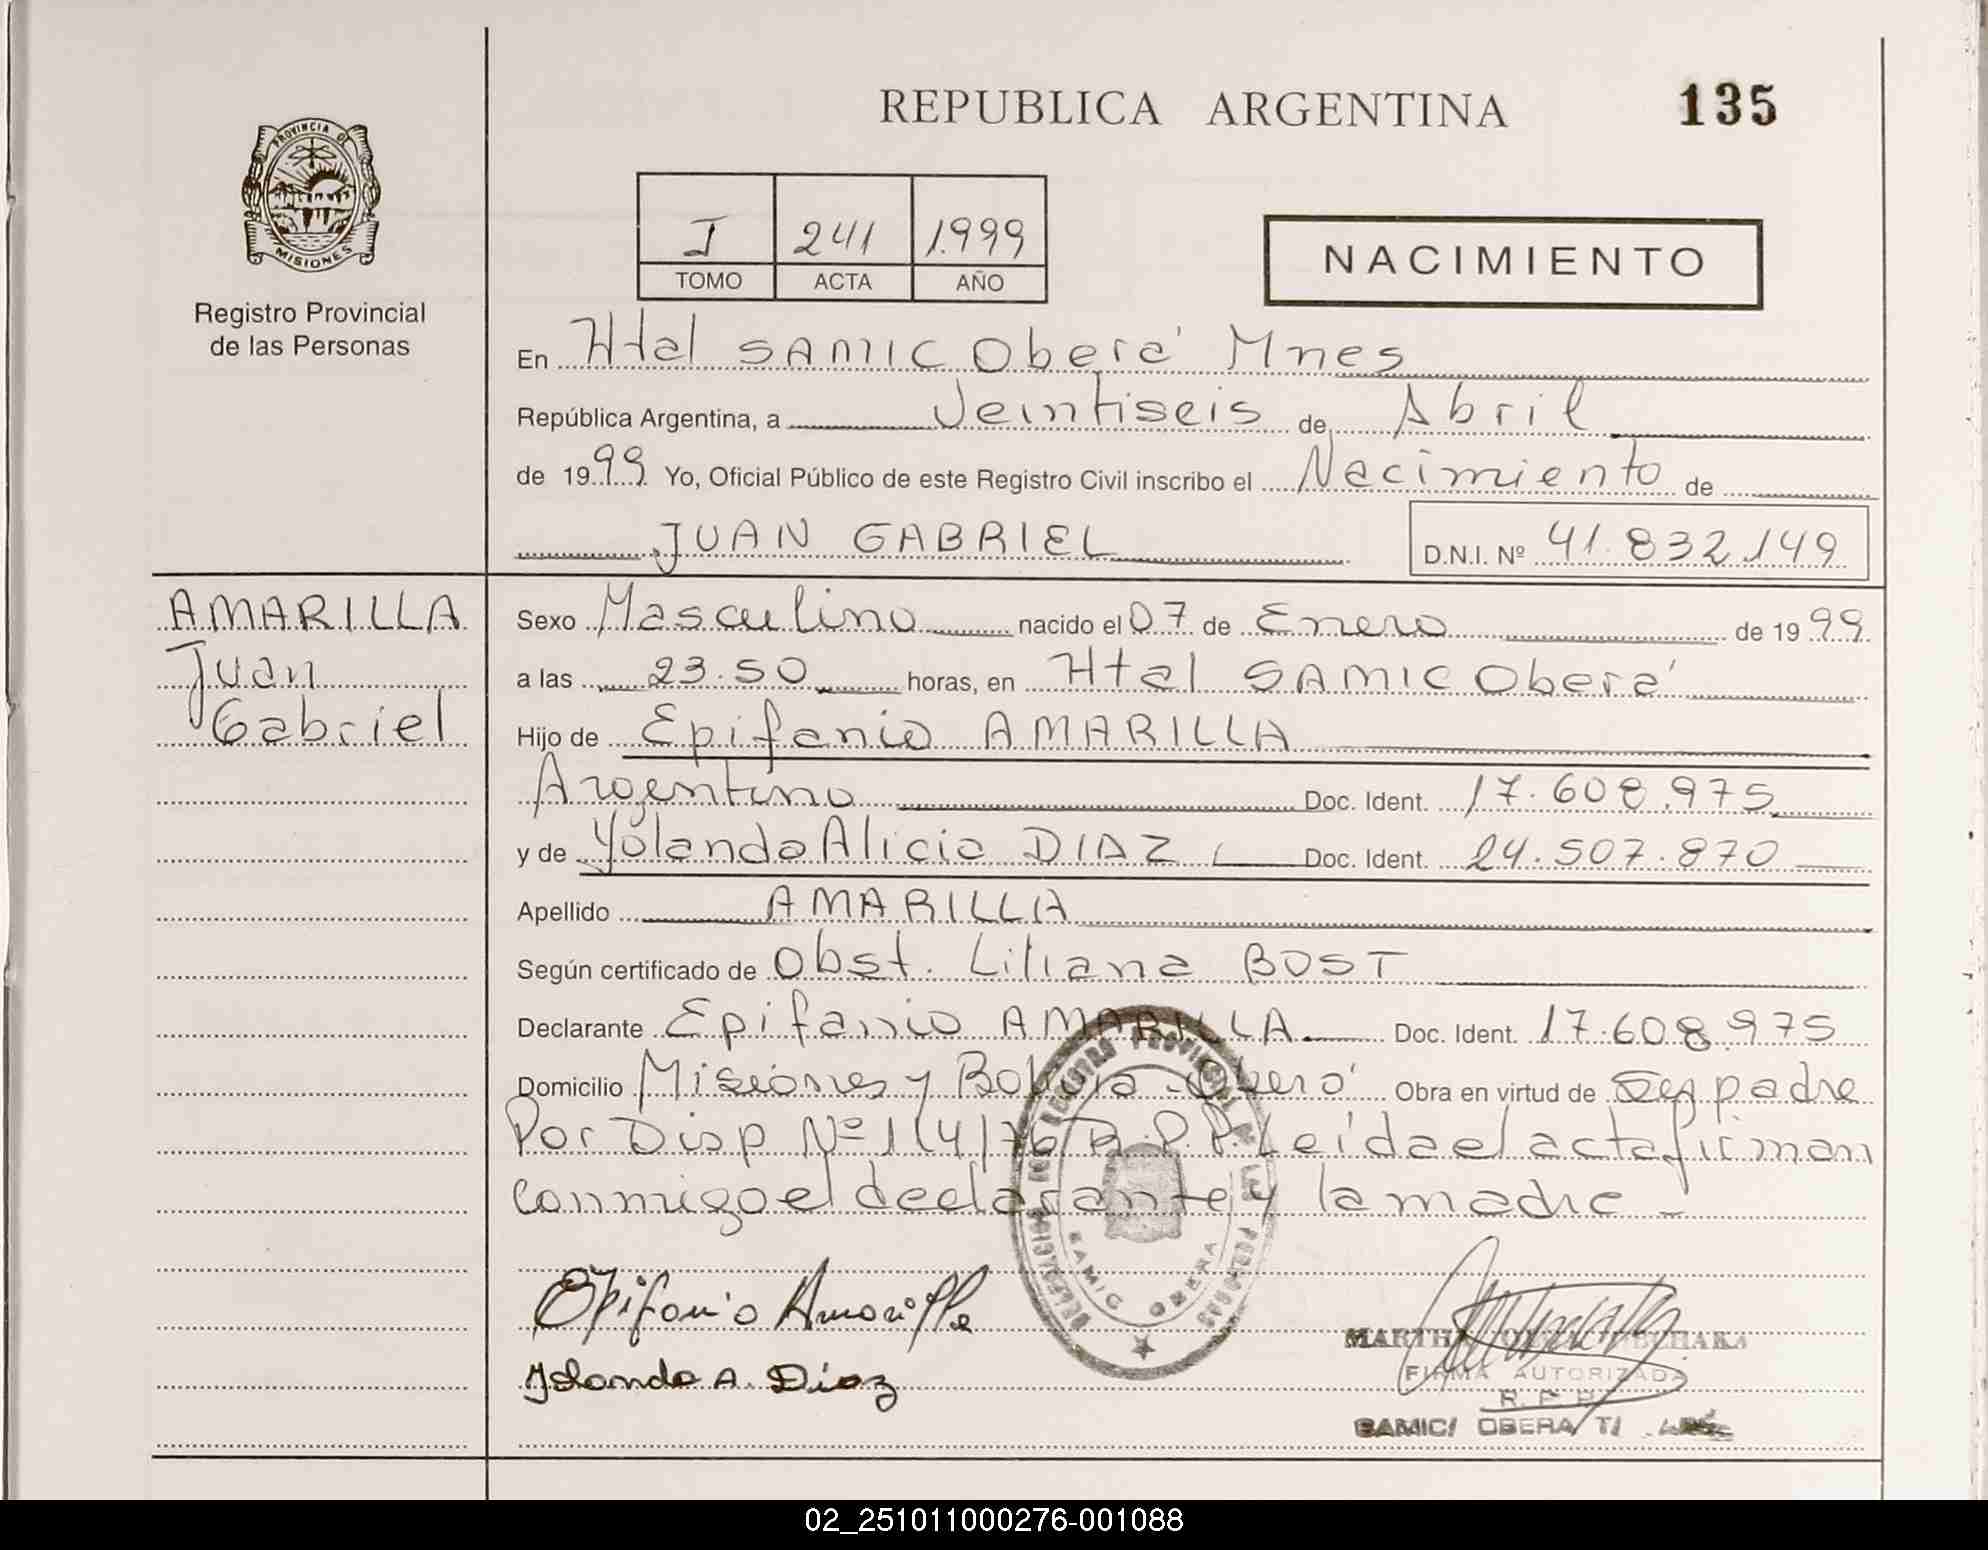 REPUBLICA ARGENTINA
135
PROVINCIA DE
MISIONES
Registro Provincial
de las Personas
I 241 1.999
TOMO ACTA AÑO
NACIMIENTO
En Htal SAMIC Oberá Mnes
República Argentina, a Veintiseis de Abril
de 1999 Yo, Oficial Público de este Registro Civil inscribo el Nacimiento de
JUAN GABRIEL D.N.I. Nº 41.832.149
AMARILLA
Juan
Gabriel
Sexo Masculino nacido el 07 de Enero de 1999
a las 23.50 horas, en Htal SAMIC Oberá
Hijo de Epifanio AMARILLA
Argentino Doc. Ident. 17.608.975
y de Yolanda Alicia DIAZ Doc. Ident. 24.507.870
Apellido AMARILLA
Según certificado de Obst. Liliana BOST
Declarante Epifanio AMARILLA Doc. Ident. 17.608.975
Domicilio Misiones y Bolivia - Oberá Obra en virtud de Ser padre
Por Disp Nº 114/76 R.P.P. Leída el acta firman
conmigo el declarante y la madre -
DELEGACION DEL REGISTRO PROVINCIAL DE LAS PERSONAS
SAMIC OBERA
Epifanio Amarilla
Yolanda A. Diaz
MARTHA
FIRMA AUTORIZADA
R. P. P.
SAMIC/ OBERA
02_251011000276-001088